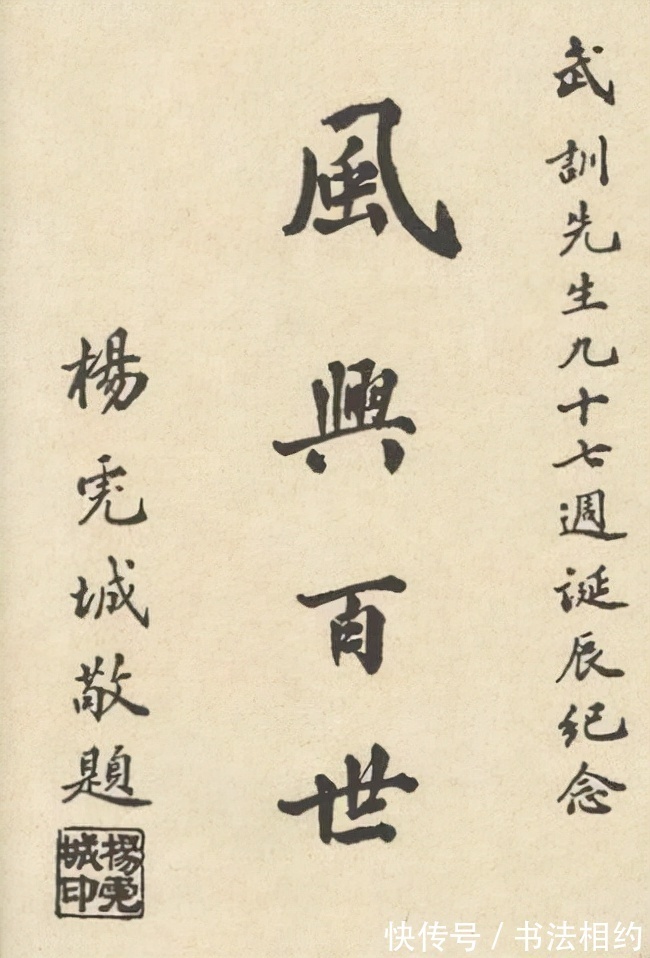 武訓先生九十七週誕辰纪念
風興百世
楊虎城敬題
楊虎城印
快传号/书法相约